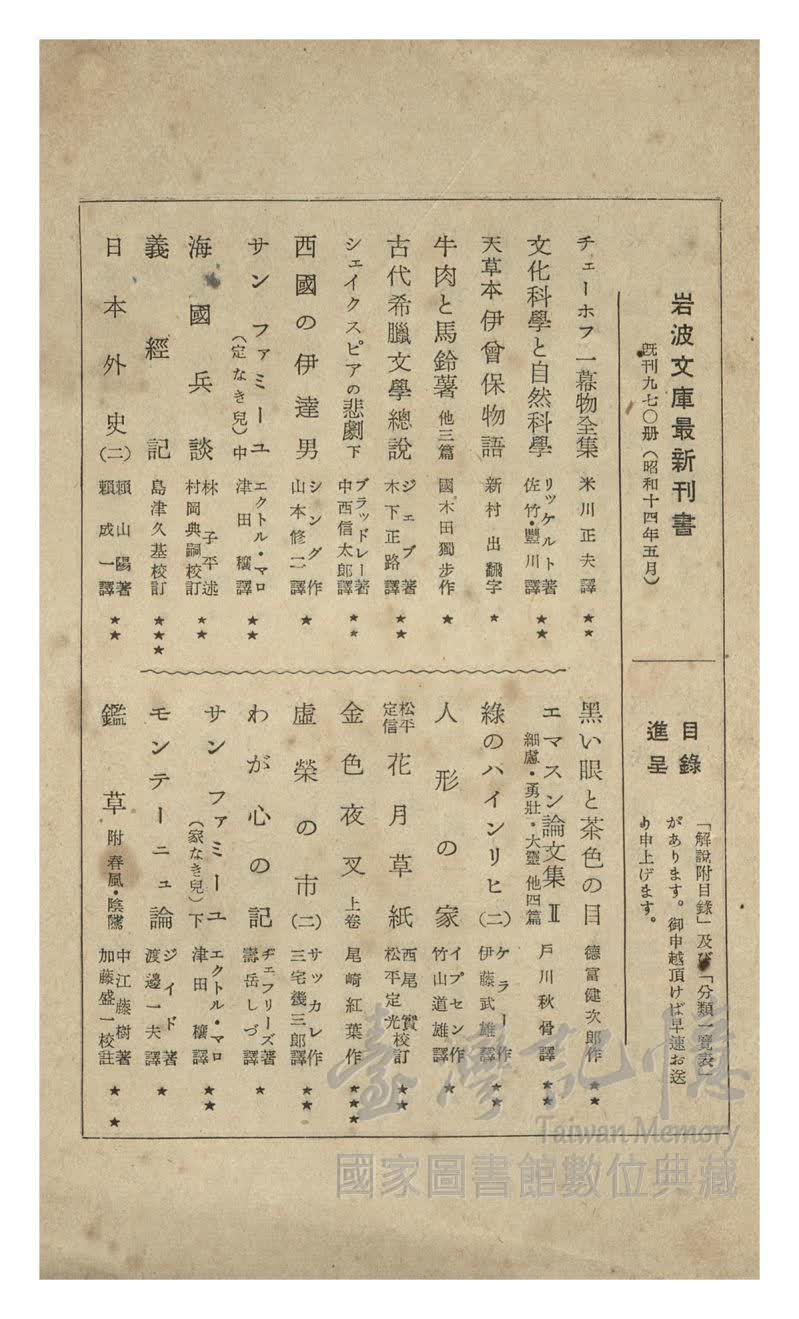 岩波文庫最新刊書
既刊九七〇册(昭和十四年五月)
目錄
進呈
「解說附目錄」及び「分類一覽表」
があります。御申越頂けば早速お送
り申上げます。
チェーホフ一幕物全集 米川正夫譯 ★★
文化科學と自然科學 リッケルト著 佐竹・豐川譯 ★★
天草本伊曾保物語 新村出飜字 ★
牛肉と馬鈴薯 他三篇 國木田獨步作 ★
古代希臘文學總說 ジェブ著 木下正路譯 ★★
シェイクスピアの悲劇 下 ブラッドレー著 中西信太郎譯 ★★
西國の伊達男 シング作 山本修二譯 ★
サンファミーユ(定なき兒)中 エクトル・マロ 津田穰譯 ★★
海國兵談 林子平述 村岡典嗣校訂 ★★
義經記 島津久基校訂 ★★★
日本外史(二) 賴山陽著 賴成一譯 ★★
黑い眼と茶色の目 德富健次郎作 ★★
エマスン論文集Ⅱ 細慮・勇壯・大靈 他四篇 戶川秋骨譯 ★★
綠のハインリヒ(二) ケラー作 伊藤武雄譯 ★★
人形の家 イプセン作 竹山道雄譯 ★
松平定信 花月草紙 西尾實 松平定光校訂 ★★
金色夜叉 上卷 尾崎紅葉作 ★★★
虛榮の市(二) サッカレ作 三宅幾三郎譯 ★★
わが心の記 ヂェフリーズ著 壽岳しづ譯 ★
サンファミーユ(家なき兒)下 エクトル・マロ 津田穰譯 ★★
モンテーニュ論 ジイド著 渡邊一夫譯 ★
鑑草 附 春風・陰隲 中江藤樹著 加藤盛一校註 ★★
臺灣記憶
Taiwan Memory
國家圖書館數位典藏